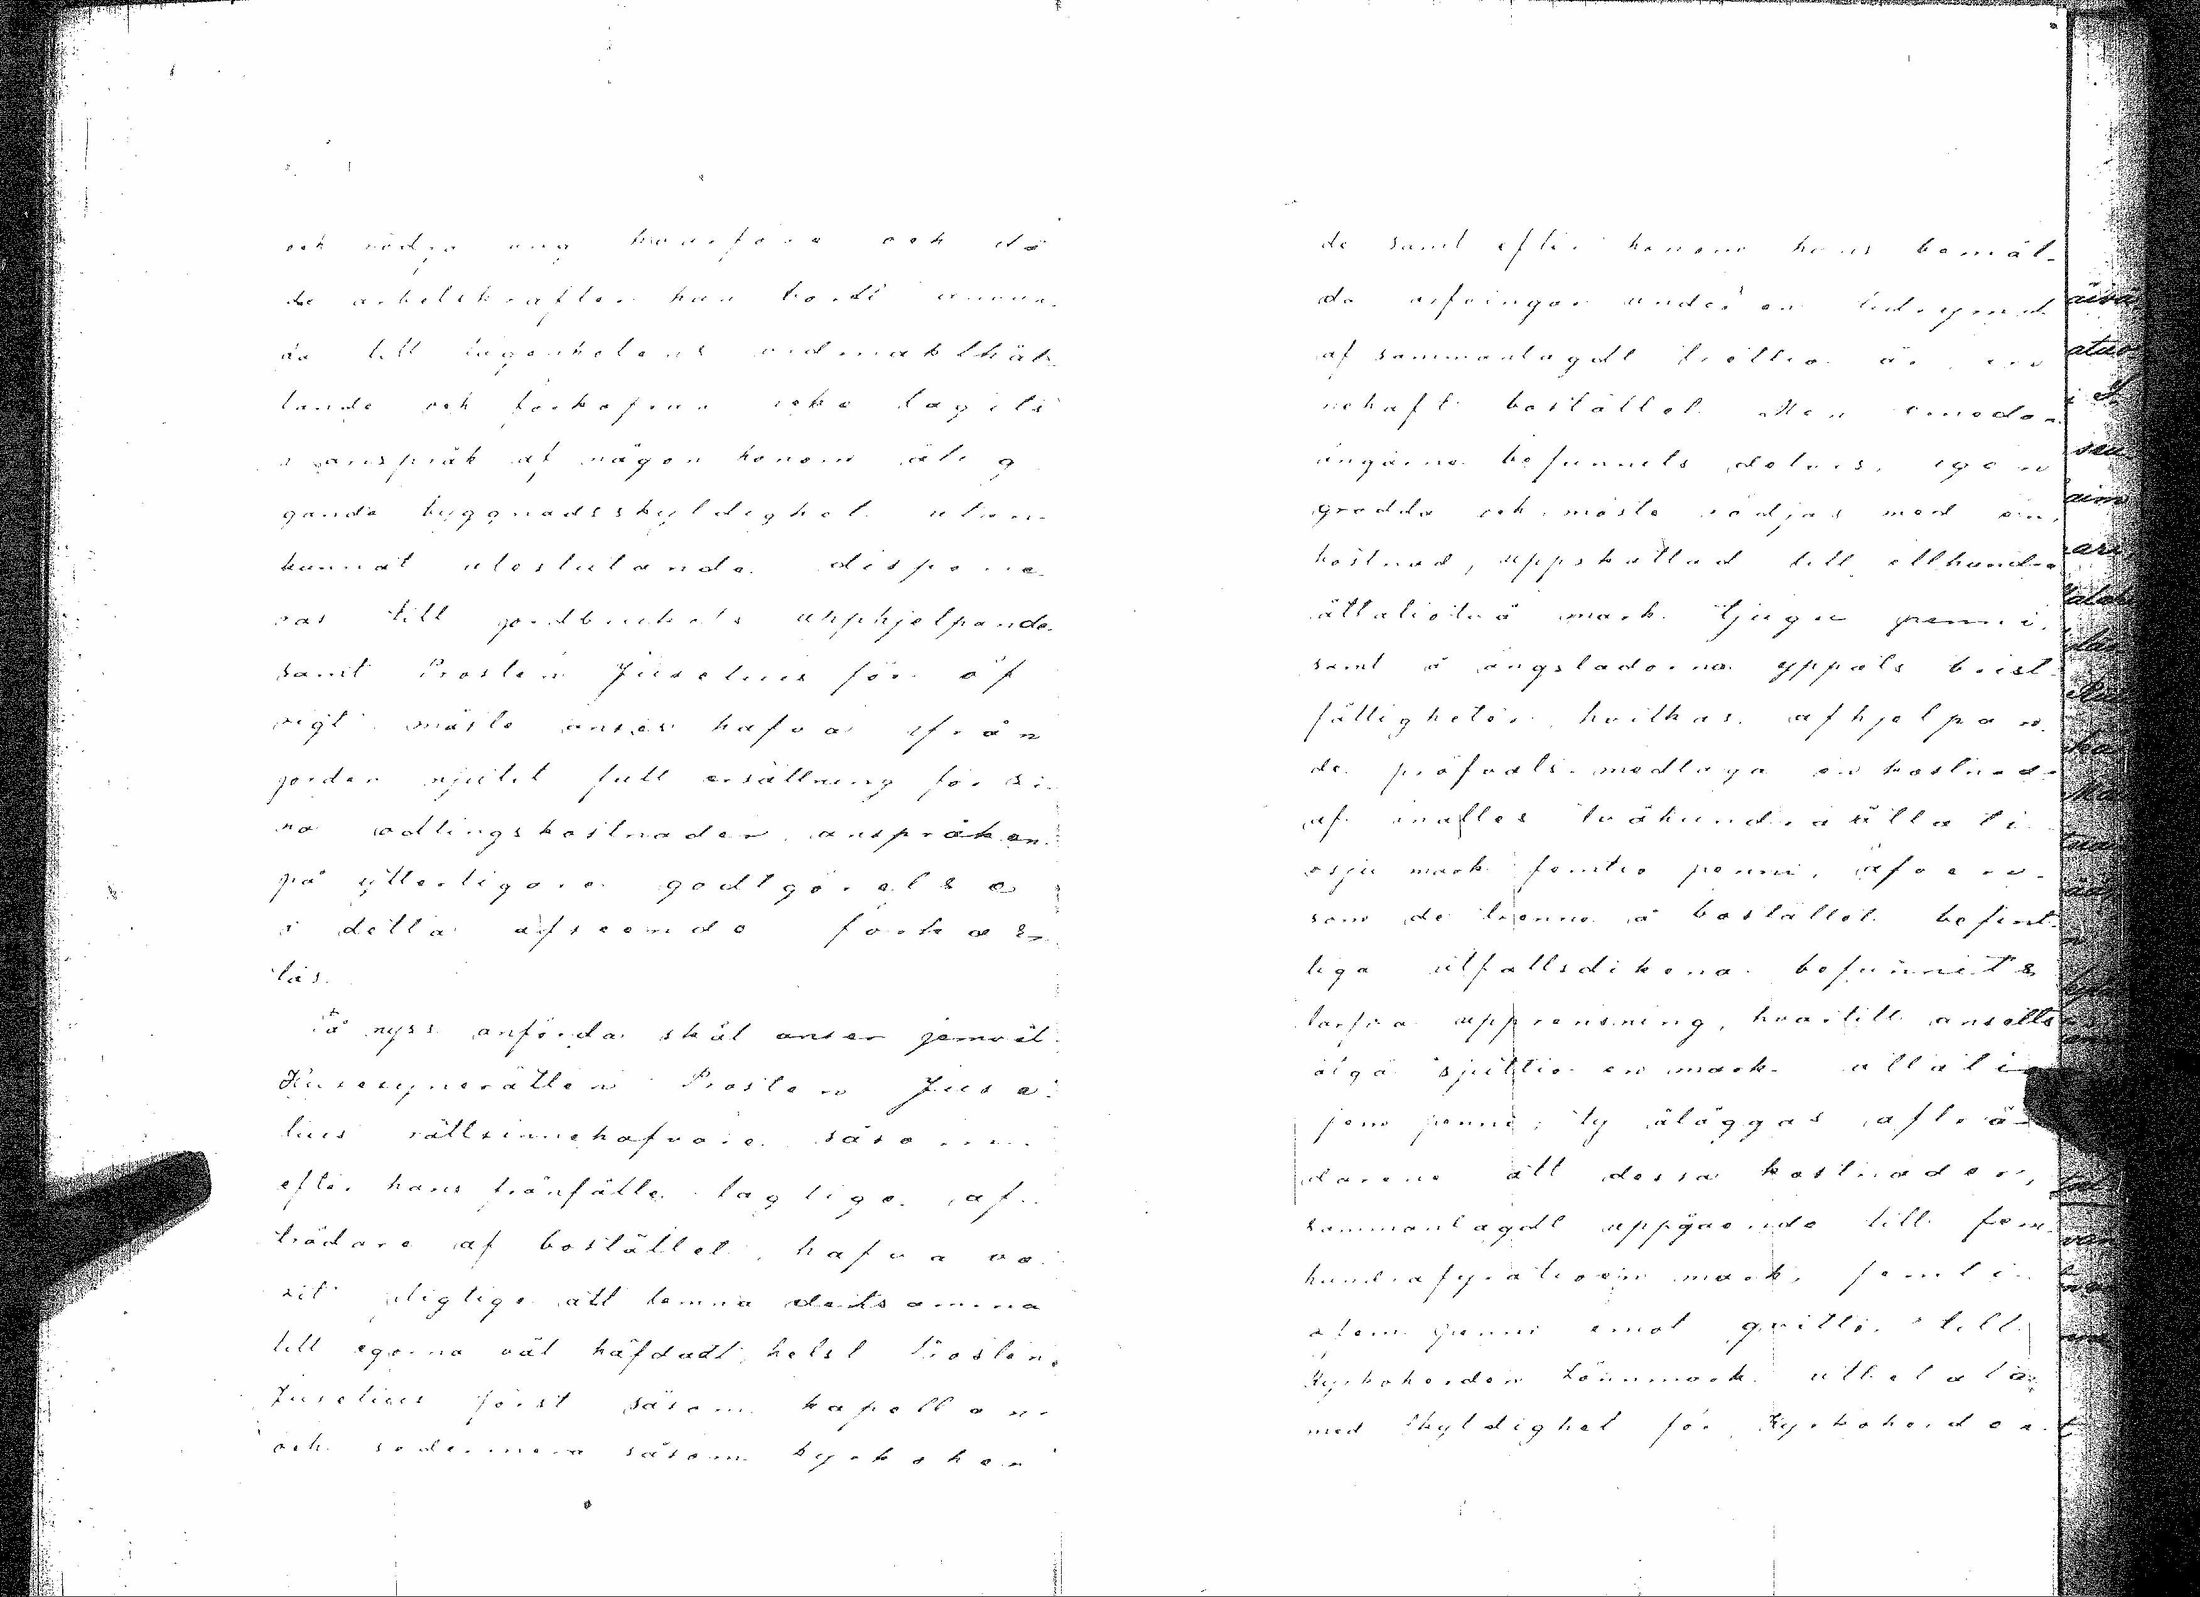 och rödja äng hvarföre och då
de arbetskrafter han bordt använ-
da till lägenhetens vidmakthål-
lande och förkofran icke tagits
i anspråk af någon honom ålig
gande byggnadsskyldighet utan
kunnat uteslutande dispone
ras till jordbrukets upphjelpande
samt Prosten Juselius för öf
rigt måste anses hafva ifrån
jorden njutit full ersättning för si-
na odlingskostnader, anspråken
på ytterligare godtgörelse
i detta afseende förkas-
tas.
På nyss anförda skäl anser jemväl
Husesynerätten Prosten Juse
lius rättsinnehafvare såsom
efter hans frånfälle lagliga af-
trädare af bostället, hafva va
rit pligtige att lemna detsamma
till egorna väl häfdadt, helst Prosten
Juselius först såsom kapellan
och sedermera såsom kyrkoher
de samt efter honom hans bemäl-
da arfvingar under en tidrymd
af sammanlagdt trettio år in
nehaft bostället. Men emedan
ängarne befunnits delvis igen
grodda och måste rödjas med en
kostnad, uppskattad till etthundra
åttatiotvå mark tjugu penni,
samt å ängsladorna yppats brist
fälligheter, hvilkas afhjelpan
de pröfvats medtaga en kostnad
af inalles tvåhundraåttati
osju mark femtio penni, äfven-
som de trenne å bostället befint
liga utfallsdikena befunnits
tarfva upprensning, hvartill ansetts
åtgå sjuttioen mark åttatio
fem penni; ty åläggas afträ
darene att dessa kostnader,
sammanlagdt uppgående till fem
hundrafyratioen mark femti
ofem penni emot qvitto till
Kyrkoherden Lönnmark utbetala
med skyldighet för Kyrkoherden